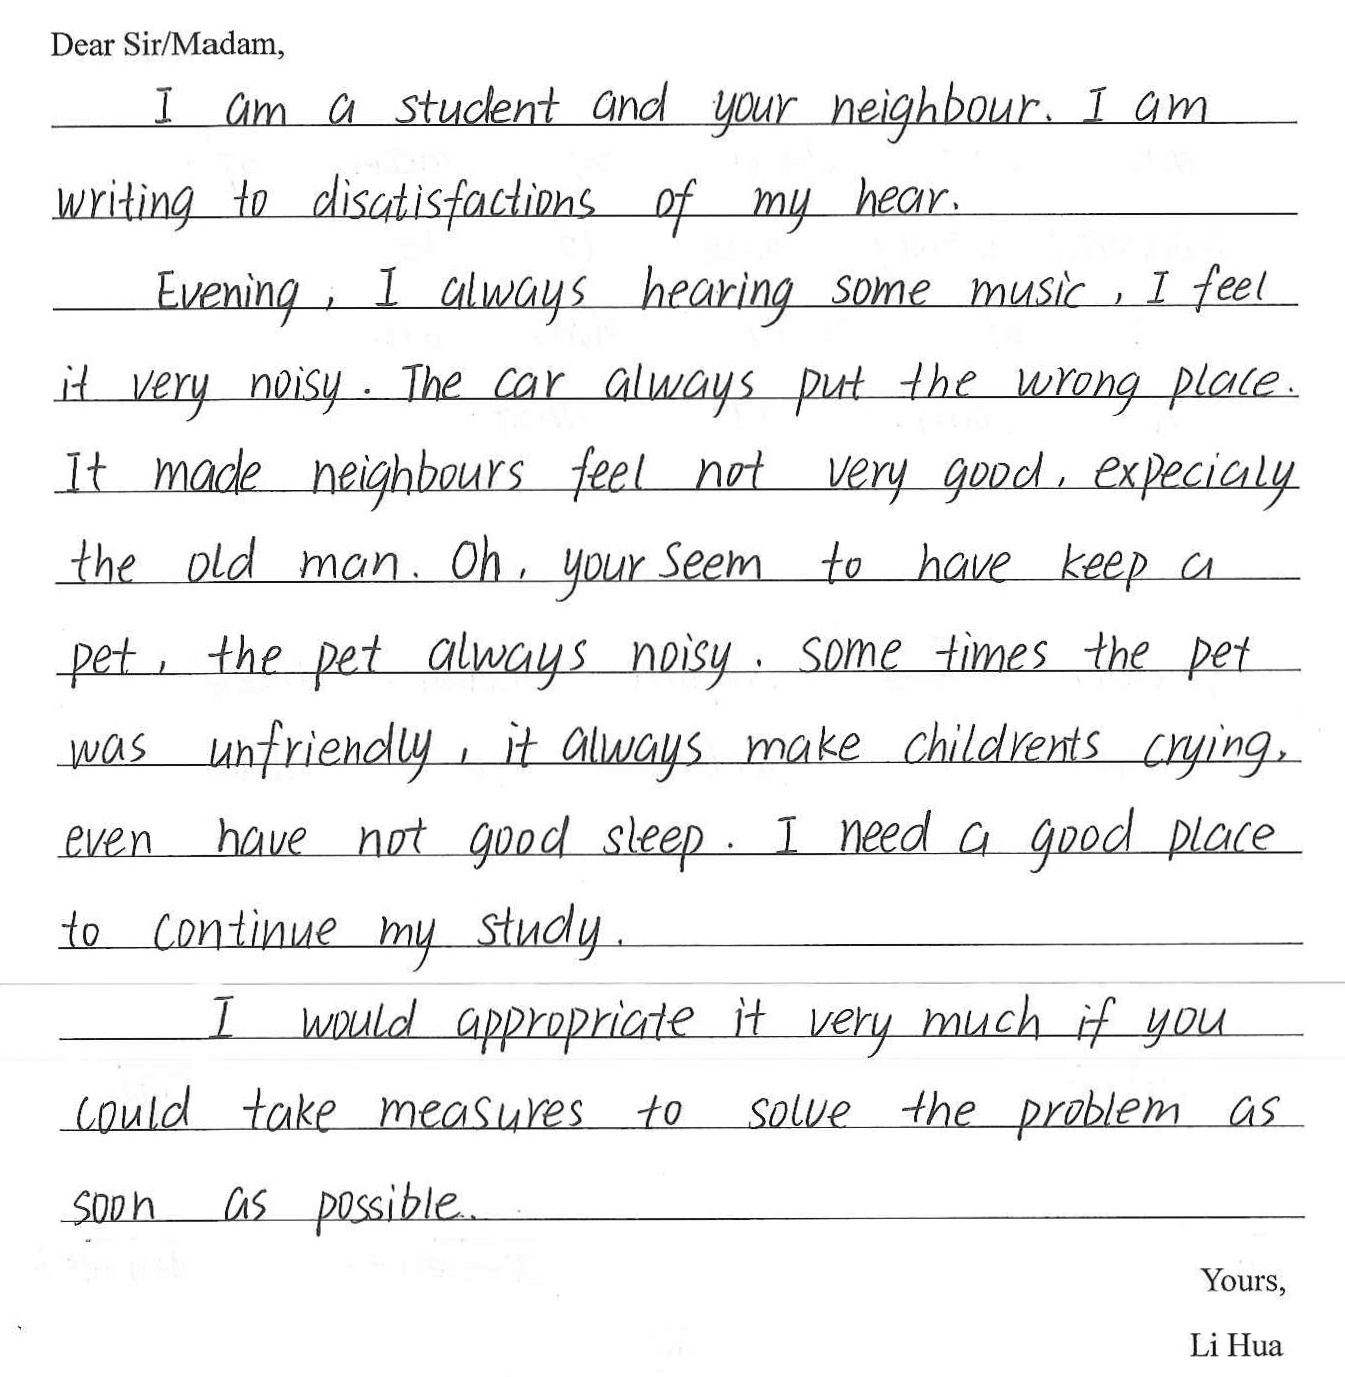 Dear Sir/Madam,
I am a student and your neighbour. I am
writing to disatisfactions of my hear.
Evening, I always hearing some music, I feel
it very noisy. The car always put the wrong place.
It made neighbours feel not very good, expecialy
the old man. Oh, your seem to have keep a
pet, the pet always noisy. some times the pet
was unfriendly, it always make childrents crying,
even have not good sleep. I need a good place
to continue my study.
I would appropriate it very much if you
could take measures to solve the problem as
soon as possible.
Yours,
Li Hua